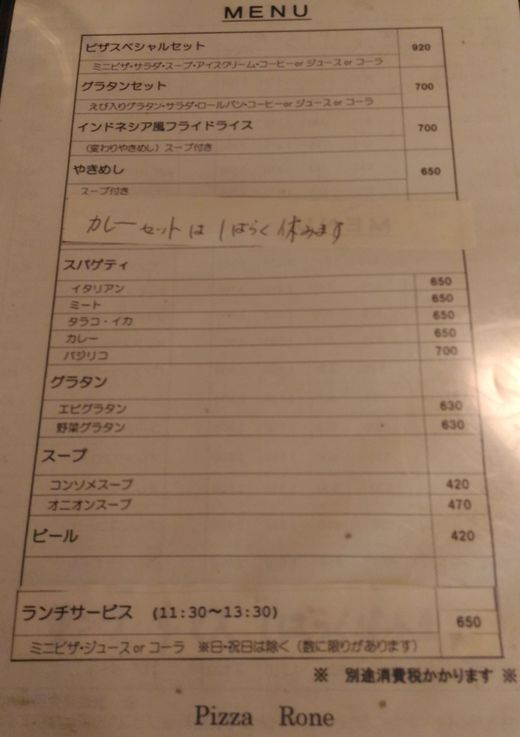 MENU
ピザスペシャルセット 920
ミニピザ・サラダ・スープ・アイスクリーム・コーヒーor ジュース or コーラ
グラタンセット 700
えび入りグラタン・サラダ・ロールパン・コーヒーor ジュース or コーラ
インドネシア風フライドライス 700
(変わりやきめし) スープ付き
やきめし 650
スープ付き
カレーセットはしばらく休みます
スパゲティ
イタリアン 650
ミート 650
タラコ・イカ 650
カレー 650
バジリコ 700
グラタン
エビグラタン 630
野菜グラタン 630
スープ
コンソメスープ 420
オニオンスープ 470
ビール 420
ランチサービス (11:30〜13:30) 650
ミニピザ・ジュース or コーラ ※日・祝日は除く (数に限りがあります)
※ 別途消費税かかります ※
Pizza Rone